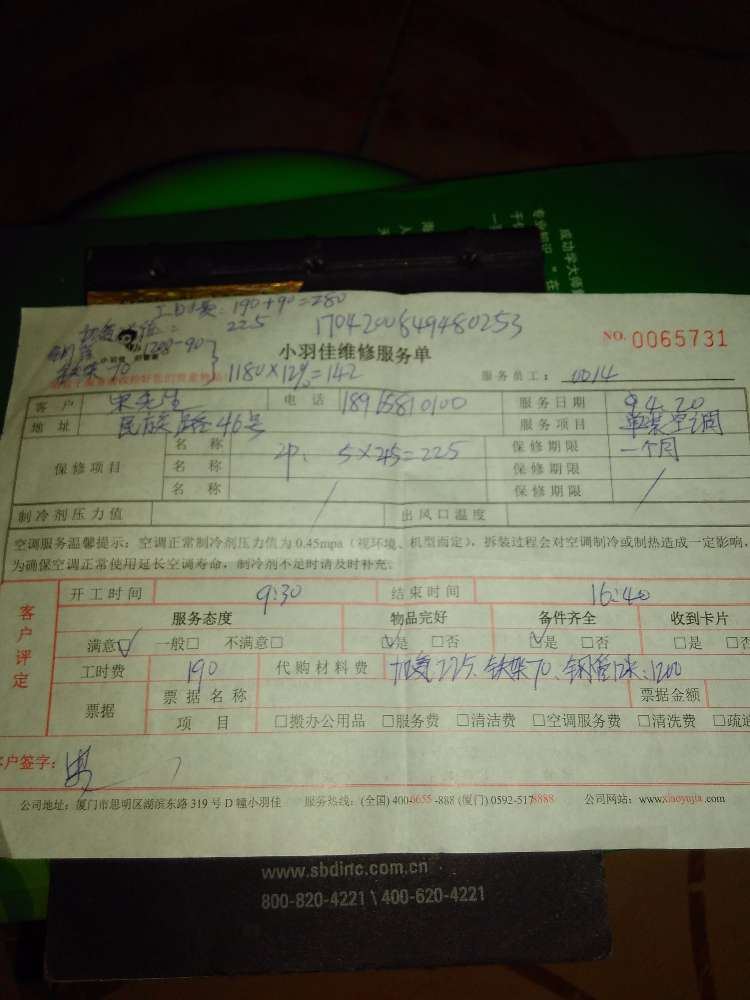 成功学大师
工时费：190+90=280
加氟
225
1704200649480253
钢管
1208-90
铁架70
1180×12%=142
小羽佳维修服务单
NO. 0065731
服务员工： 0014
客户 宋先生 电话 18915810100 服务日期 9.4.20
地址 民族路46号 服务项目 单装空调
保修项目 名称 2P. 5×45=225 保修期限 一个月
名称 保修期限
名称 保修期限
制冷剂压力值 出风口温度
空调服务温馨提示：空调正常制冷剂压力值为0.45mpa（视环境、机型而定），拆装过程会对空调制冷或制热造成一定影响，
为确保空调正常使用延长空调寿命，制冷剂不足时请及时补充。
客户评定
开工时间 9:30 结束时间 16:40
服务态度 物品完好 备件齐全 收到卡片
满意☑ 一般□ 不满意□ ☑是 □否 ☑是 □否 □是 □否
工时费 190 代购材料费 加氟225.铁架70、钢管12米:1200
票据 票据名称 票据金额
项目 □搬办公用品 □服务费 □清洁费 □空调服务费 □清洗费 □疏通
客户签字：
公司地址：厦门市思明区湖滨东路319号D幢小羽佳 服务热线：(全国) 400-6655-888 (厦门) 0592-5178888 公司网站：www.xiaoyujia.com
www.sbdinc.com.cn
800-820-4221 \ 400-620-4221